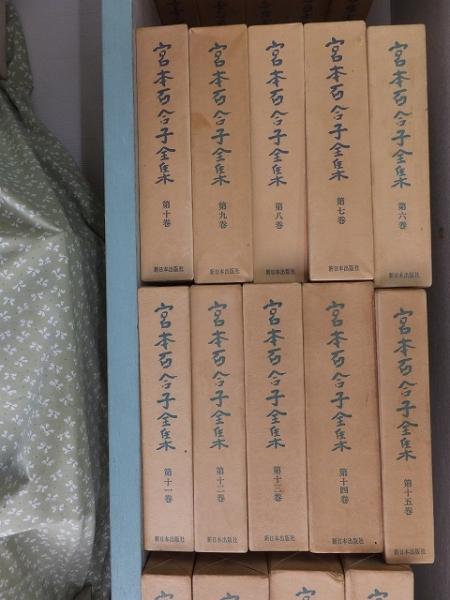 宮本百合子全集 第十巻 新日本出版社
宮本百合子全集 第九巻 新日本出版社
宮本百合子全集 第八巻 新日本出版社
宮本百合子全集 第七巻 新日本出版社
宮本百合子全集 第六巻 新日本出版社
宮本百合子全集 第十一巻 新日本出版社
宮本百合子全集 第十二巻 新日本出版社
宮本百合子全集 第十三巻 新日本出版社
宮本百合子全集 第十四巻 新日本出版社
宮本百合子全集 第十五巻 新日本出版社
宮
宮
宮
宮